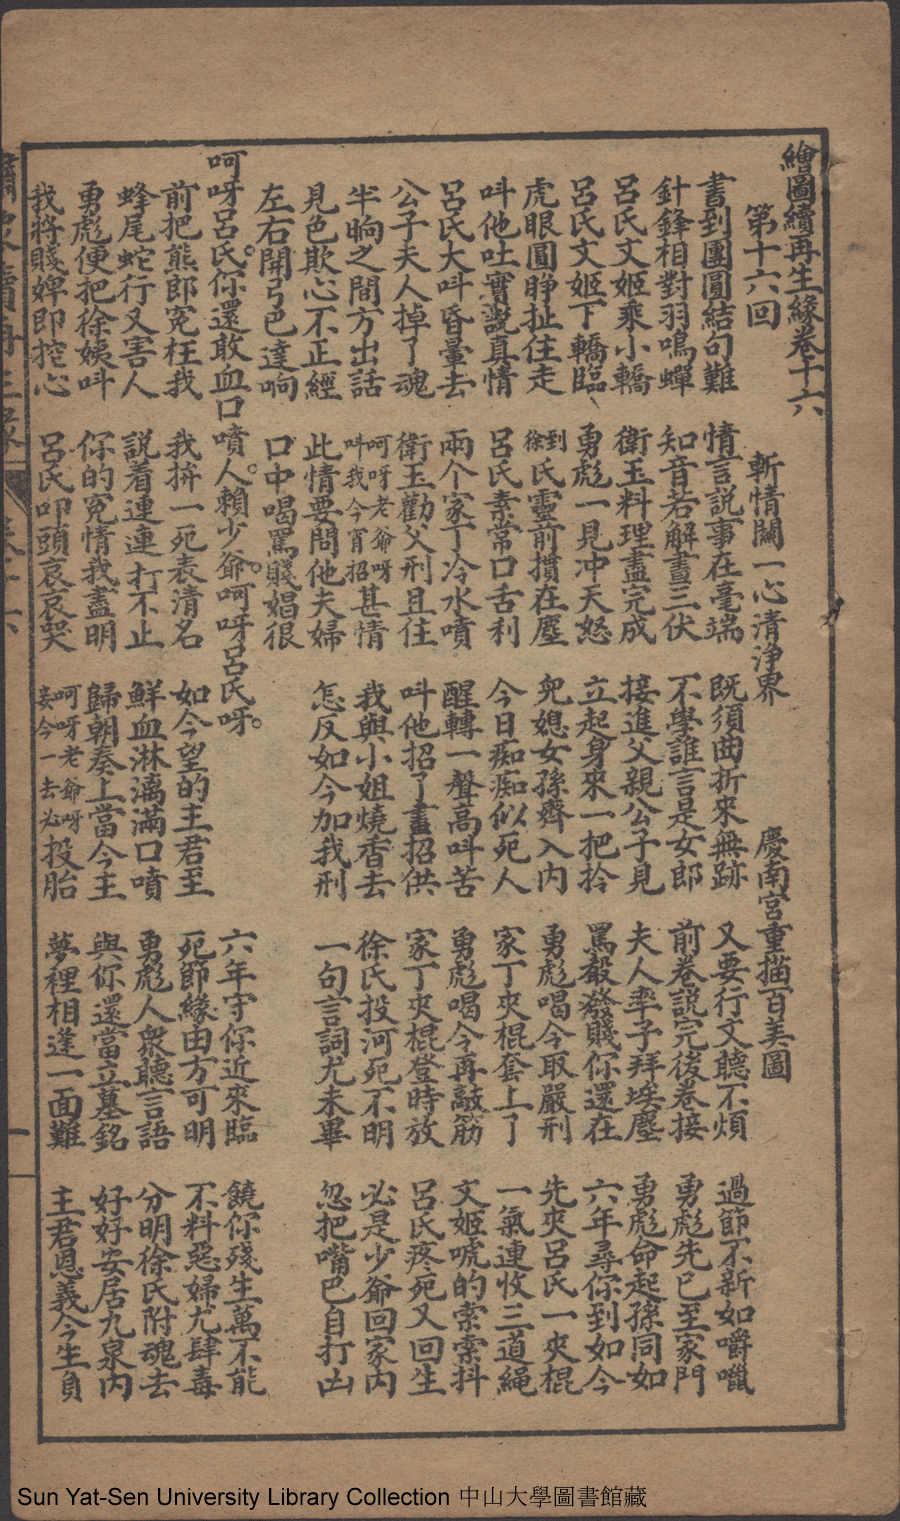 繪圖續再生緣卷十六
第十六回 斬情關一心清淨界 慶南宮重描百美圖
書到團圓結句難 情言說事在毫端 既須曲折來無跡 又要行文聽不煩 過節不新如嚼蠟
針鋒相對羽鳴蟬 知音若解晝三伏 不學誰言是女郎 前卷説完後卷接 勇彪先已至家門
呂氏文姬乘小轎 衛玉料理盡完成 接進父親公子見 夫人率子拜埃塵 勇彪命起孫同如
呂氏文姬下轎臨 勇彪一見冲天怒 立起身來一把拎 罵殺潑賤你還在 六年尋你到如今
虎眼圓睜扯住走 到徐氏靈前摜在塵 兒媳女孫齊入内 勇彪喝令取嚴刑 先夾呂氏一夾棍
呌他吐實說真情 呂氏素常口舌利 今日痴痴似死人 家丁夾棍套上了 一氣連收三道繩
呂氏大呌昏暈去 兩个家丁冷水噴 醒轉一聲高呌苦 勇彪喝令再敲筋 文姬唬的索索抖
公子夫人掉了魂 衛玉勸父刑且住 呌他招了畫招供 家丁夾棍登時放 呂氏疼死又回生
半晌之間方出話 呵呀老爺呀呌我今宵招甚情 我與小姐燒香去 徐氏投河死不明 必是少爺回家内
見色欺心不正經 此情要問他夫婦 怎反如今加我刑 一句言詞尤未畢 忽把嘴巴自打凶
左右開弓巴達响 口中喝罵賤娼很
呵呀呂氏。你還敢血口噴人。賴少爺。呵呀呂氏呀。 六年守你近來臨 饒你殘生萬不能
前把熊郎冤枉我 我拚一死表清名 如今望的主君至 死節緣由方可明 不料惡婦尤肆毒
蜂尾蛇行又害人 説着連連打不止 鮮血淋漓滿口噴 勇彪人衆聽言語 分明徐氏附魂去
勇彪便把徐姨呌 你的冤情我盡明 歸朝奏上當今主 與你還當立墓銘 好好安居九泉内
我將賤婢即挖心 呂氏叩頭哀哀哭 呵呀老爺呀妾今一去必投胎 夢裡相逢一面難 主君恩義今生負
一
Sun Yat-Sen University Library Collection 中山大學圖書館藏